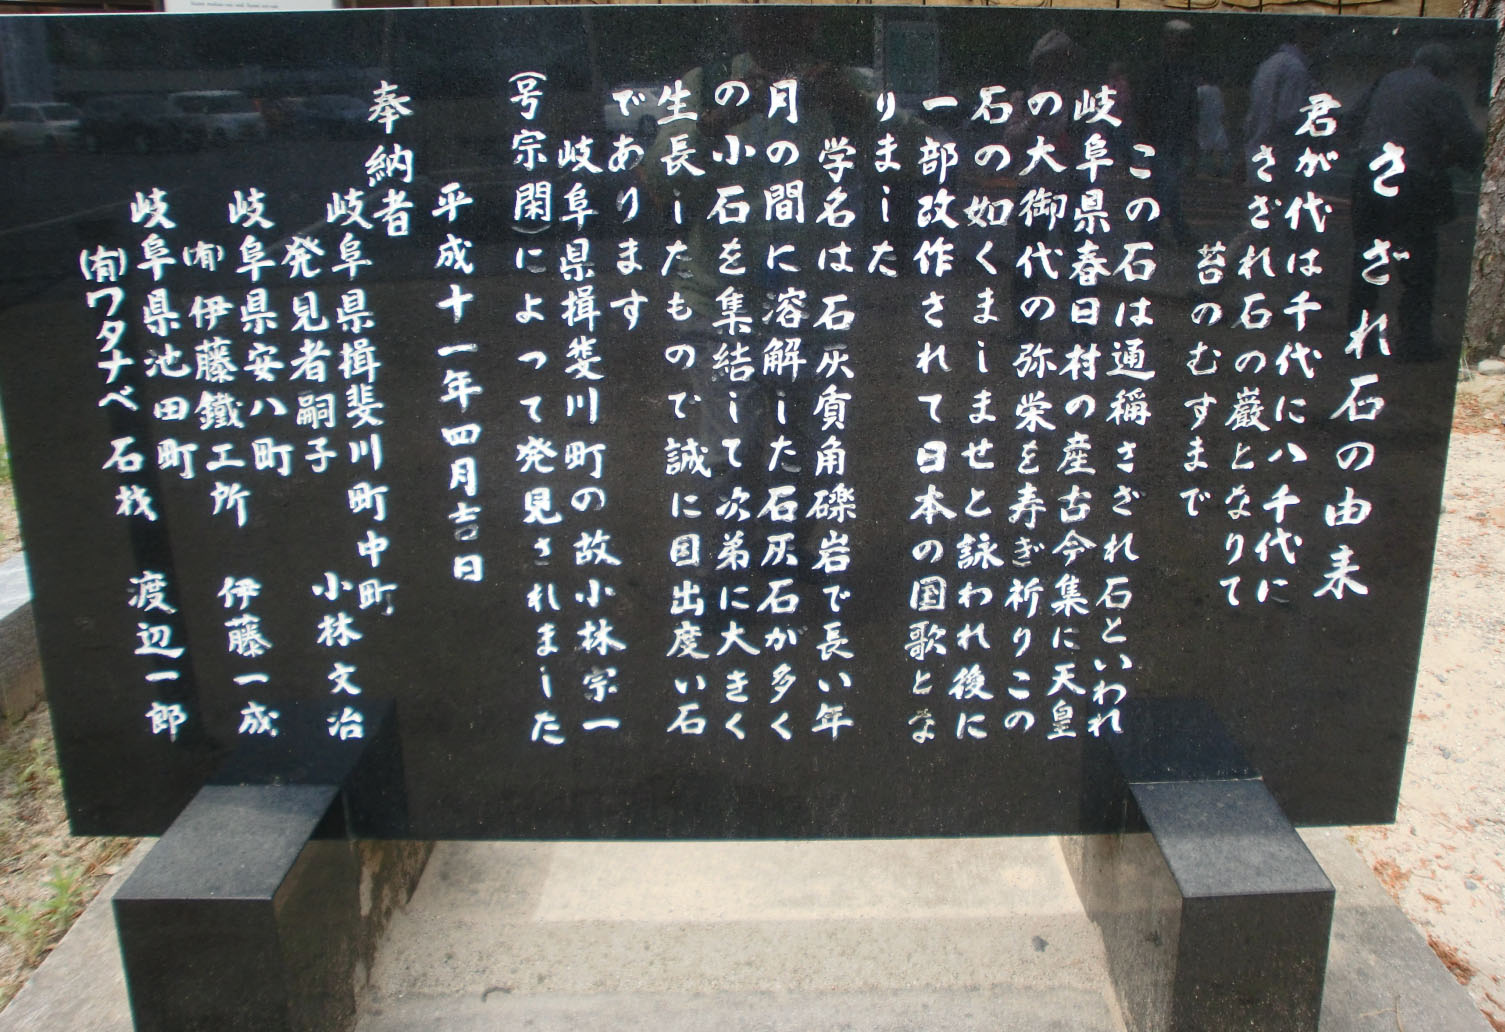 さざれ石の由来
君が代は千代に八千代に
さざれ石の巌となりて
苔のむすまで
この石は通稱さざれ石といわれ
岐阜県春日村の産古今集に天皇
の大御代の弥栄を寿ぎ祈りこの
石の如くましませと詠われ後に
一部改作されて日本の国歌とな
りました
学名は石灰質角礫岩で長い年
月の間に溶解した石灰石が多く
の小石を集結して次第に大きく
生長したもので誠に目出度い石
であります
岐阜県揖斐川町の故小林宗一
(号宗閑)によつて発見されました
平成十一年四月吉日
奉納者
岐阜県揖斐川町中町
発見者嗣子 小林文治
岐阜県安八町
(有)伊藤鐵工所 伊藤一成
岐阜県池田町
(有)ワタナベ石材 渡辺一郎